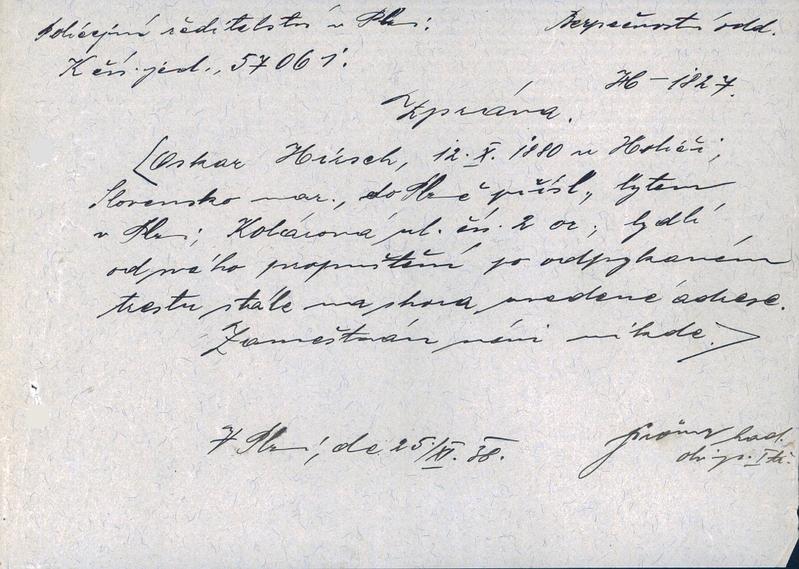 Policejní ředitelství v Plzni. Bezpečnostní odd.
K čís. jed., 57061.
H – 1827.
Zpráva.
Oskar Hirsch, 12. X. 1880 v Holíči,
Slovensko nar., do Plzně přísl., bytem
v Plzni, Kolárova ul. čís. 2 or., bydlí
od svého propuštění po odpykaném
trestu stále na shora uvedené adrese.
Zaměstnán není nikde.
V Plzni, dne 25/XI. 38.
kad.
I tř.